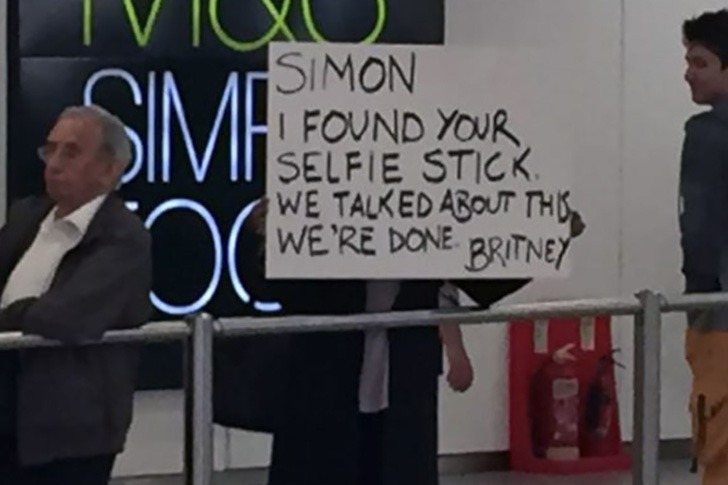 SIMON
I FOUND YOUR
SELFIE STICK.
WE TALKED ABOUT THIS
WE'RE DONE. BRITNEY